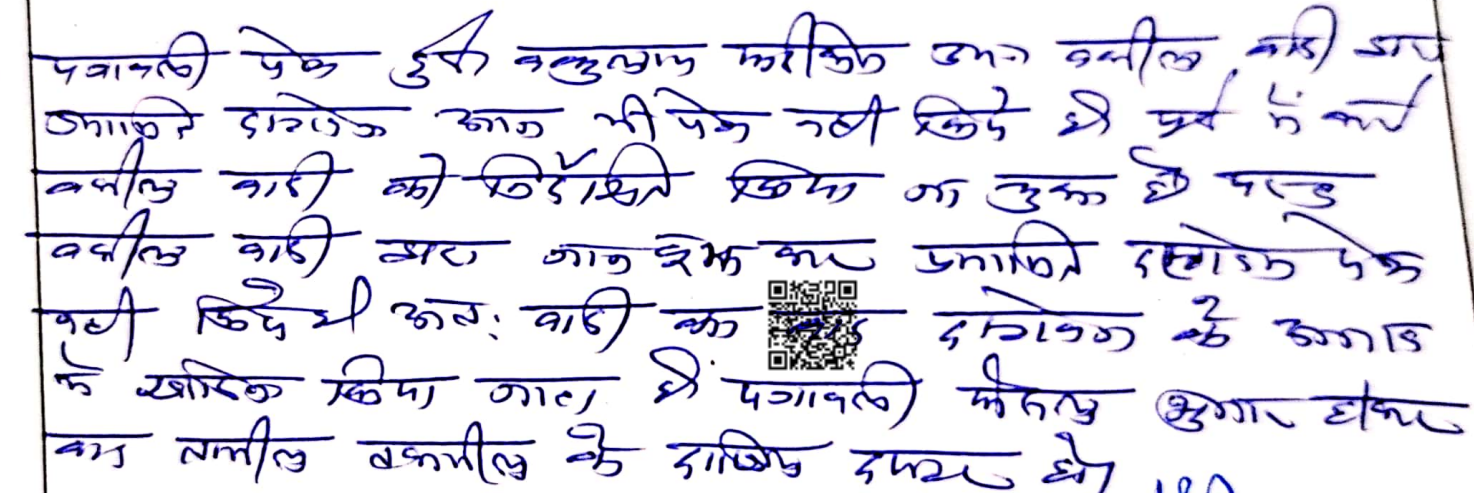 पत्रावली पेश हुई वकुलाय फरीकेन उप० वकील वादी द्वारा
प्रमाणित दस्तावेज आज भी पेश नही किये है पूर्व में कई
वकील वादी को निर्देशित किया जा चुका है परन्तु
वकील वादी द्वारा जान बुझ कर प्रमाणित दस्तावेज पेश
नही किये है अतः वादी का वाद दस्तावेज के अभाव
में खारिज किया जाता है पत्रावली फैसल शुमार होकर
बाद तामील तकमील के दाखिल दफ्तर हो।